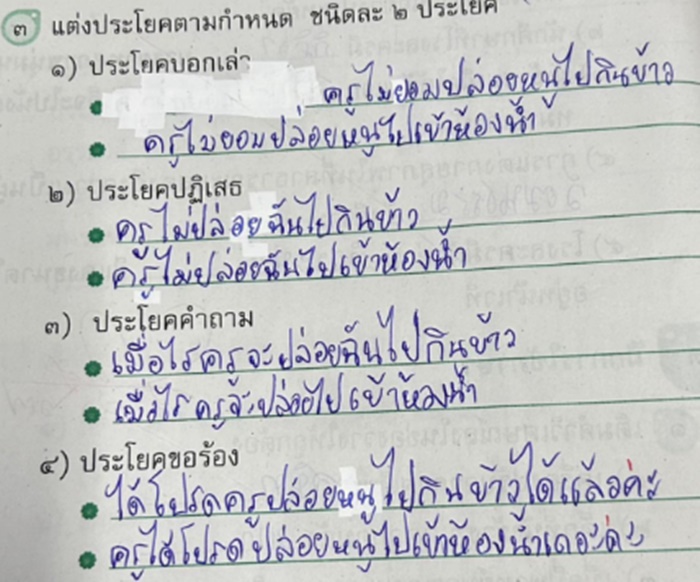 ๓ แต่งประโยคตามกำหนด ชนิดละ ๒ ประโยค
๑) ประโยคบอกเล่า
ครูไม่ยอมปล่อยหนูไปกินข้าว
ครูไม่ยอมปล่อยหนูไปเข้าห้องน้ำ
๒) ประโยคปฏิเสธ
ครูไม่ปล่อยฉันไปกินข้าว
ครูไม่ปล่อยฉันไปเข้าห้องน้ำ
๓) ประโยคคำถาม
เมื่อไรครูจะปล่อยฉันไปกินข้าว
เมื่อไรครูจะปล่อยไปเข้าห้องน้ำ
๔) ประโยคขอร้อง
ได้โปรดครูปล่อยหนูไปกินข้าวได้แล้วค่ะ
ครูได้โปรดปล่อยหนูไปเข้าห้องน้ำเถอะค่ะ